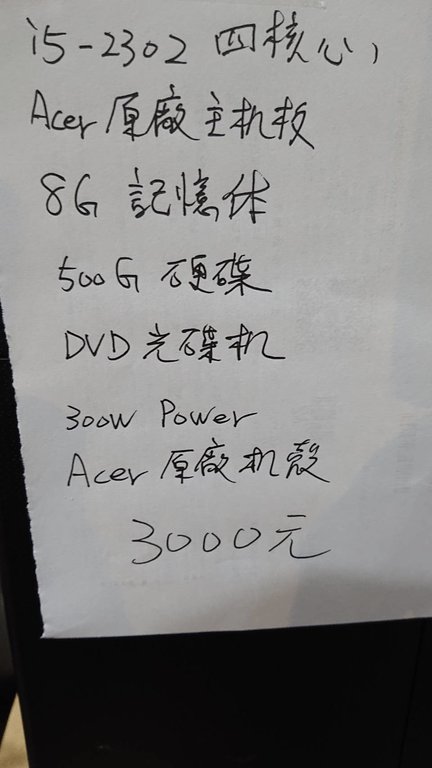 i5-2302 四核心,
Acer 原廠主机板
8G 記憶体
500G 硬碟
DVD 光碟机
300W Power
Acer 原廠机殼
3000元